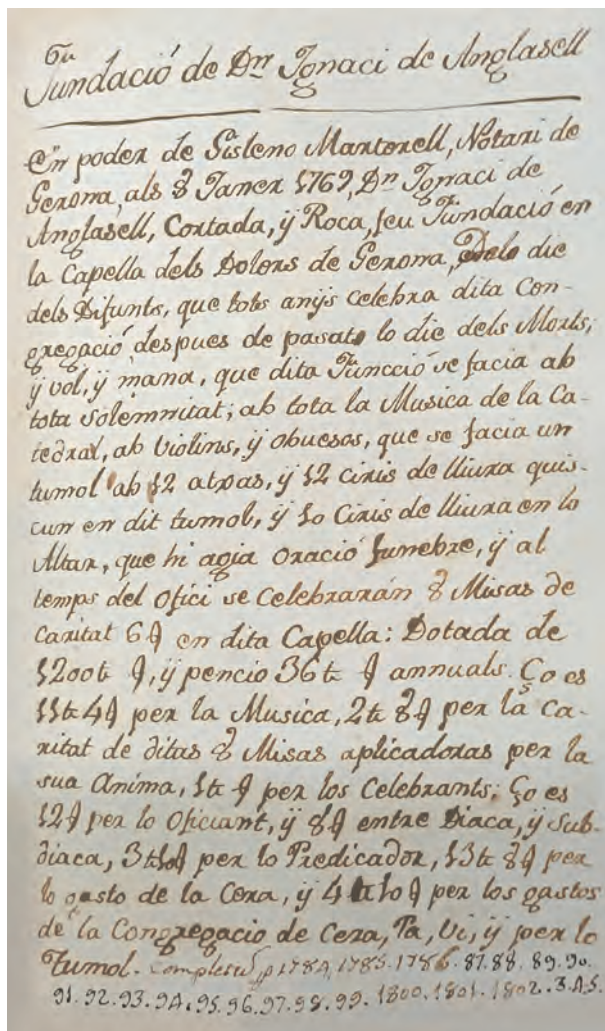 Fundació de Dn Ignaci de Anglasell
En poder de Gisleno Mantorell, Notari de
Gerona, als 8 Janer 1769, Dn Ignaci de
Anglasell, Cortada, ÿ Roca, feu Fundació en
la Capella dels Dolors de Gerona, Delo die
dels Difunts, que tots anÿs celebra dita Con-
gregació despues de pasats lo die dels Morts,
ÿ vol, ÿ mana, que dita Funcció se facia ab
tota solemnitat; ab tota la Musica de la Ca-
tedral, ab Violins, ÿ obuesos, que se facia un
tumol ab 12 atxas, ÿ 12 ciris de lliura quis-
cun en dit tumol, ÿ 10 Ciris de lliura en lo
Altar, que hi agia oració funebre, ÿ al
temps del ofici se celebrarán 8 Misas de
caritat 6 ş en dita Capella: Dotada de
1200 ₶ ş, ÿ pencio 36 ₶ ş annuals. Ço es
11 ₶ 4 ş per la Musica, 2 ₶ 8 ş per las Ca-
ritat de ditas 8 Misas aplicadoras per la
sua Anima, 1 ₶ ş per los Celebrants; ço es
12 ş per lo Oficiant, ÿ 8 ş entre Diaca, ÿ Sub-
diaca, 3 ₶ 10 ş per lo Predicador, 13 ₶ 8 ş per
lo gasto de la Cera, ÿ 4 ₶ 10 ş per los gastos
de la Congregacio de Cera, Pa, Vi, ÿ per lo
Tumol. 1784, 1785. 1786. 87. 88. 89. 90.
91. 92. 93. 94. 95. 96. 97. 98. 99. 1800. 1801. 1802. 3.4.5.